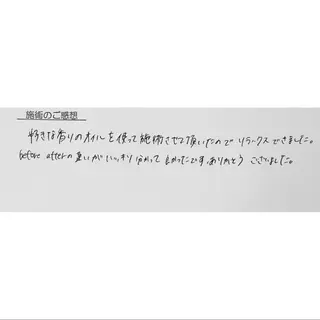 施術のご感想
好きな香りのオイルを使って施術させて頂いたので リラックスできました。
before afterの違いがいっきり分かって よかったです。ありがとう ございました。